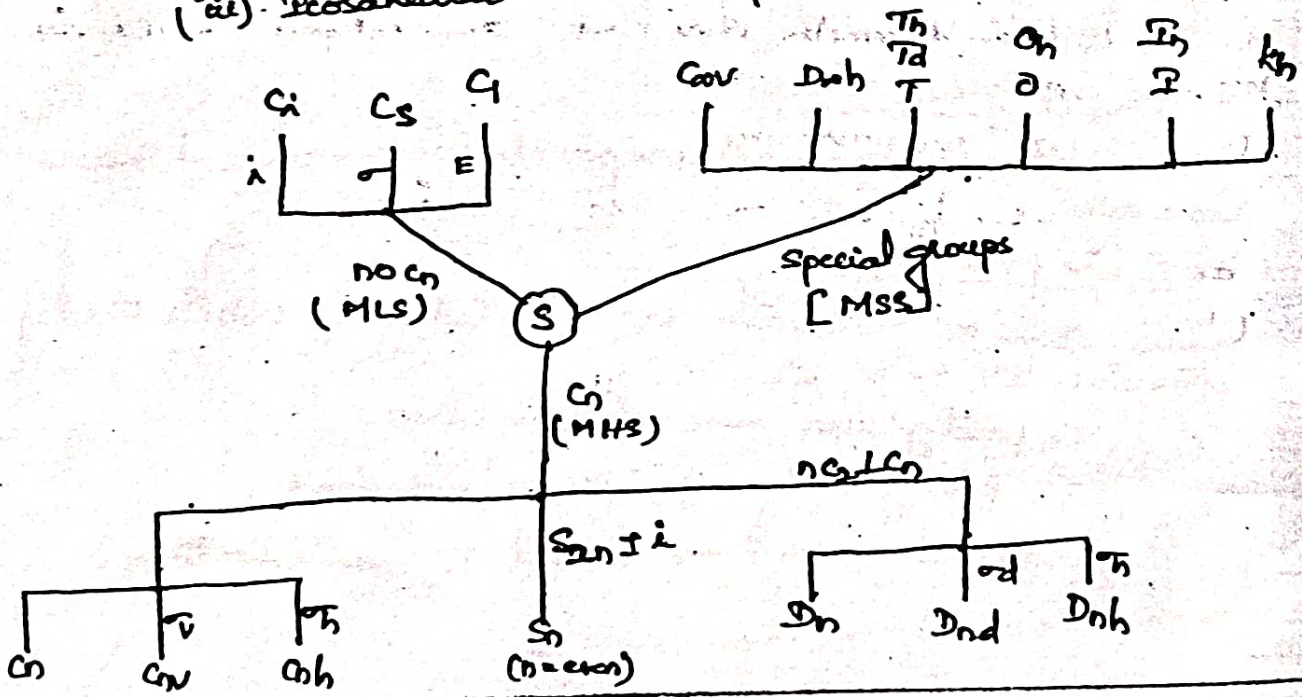 (iii). Icosahedral
Ci Cs C1
i σ E
C∞v D∞h Th Td T Oh O Ih I Kh
no Cn
(MLS)
special groups
[MSS]
S
Cn
(MHS)
nC2⊥Cn
S2n ± i
σv σh σd σh
Cn Cnv Cnh
Sn
(n=even)
Dn Dnd Dnh